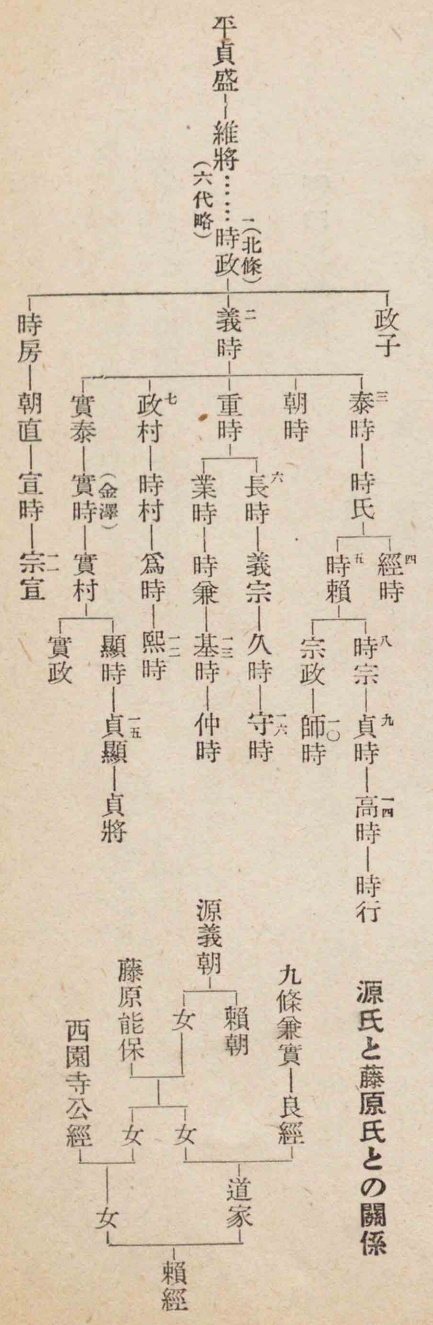 平貞盛―維將……時政
(六代略)
一(北條)
政子
二義時
時房―朝直―宣時―宗宣一一
三泰時―時氏
四經時
五時賴
八時宗―九貞時―一四高時―時行
宗政―一〇師時
朝時
重時
六長時―義宗―久時―一六守時
業時―時兼―一三基時―仲時
七政村―時村―爲時―一二熙時
實泰―(金澤)實時―實村
顯時―一五貞顯―貞將
實政
源氏と藤原氏との關係
九條兼實―良經
源義朝
賴朝
女
藤原能保
女
女
西園寺公經
道家
女
賴經